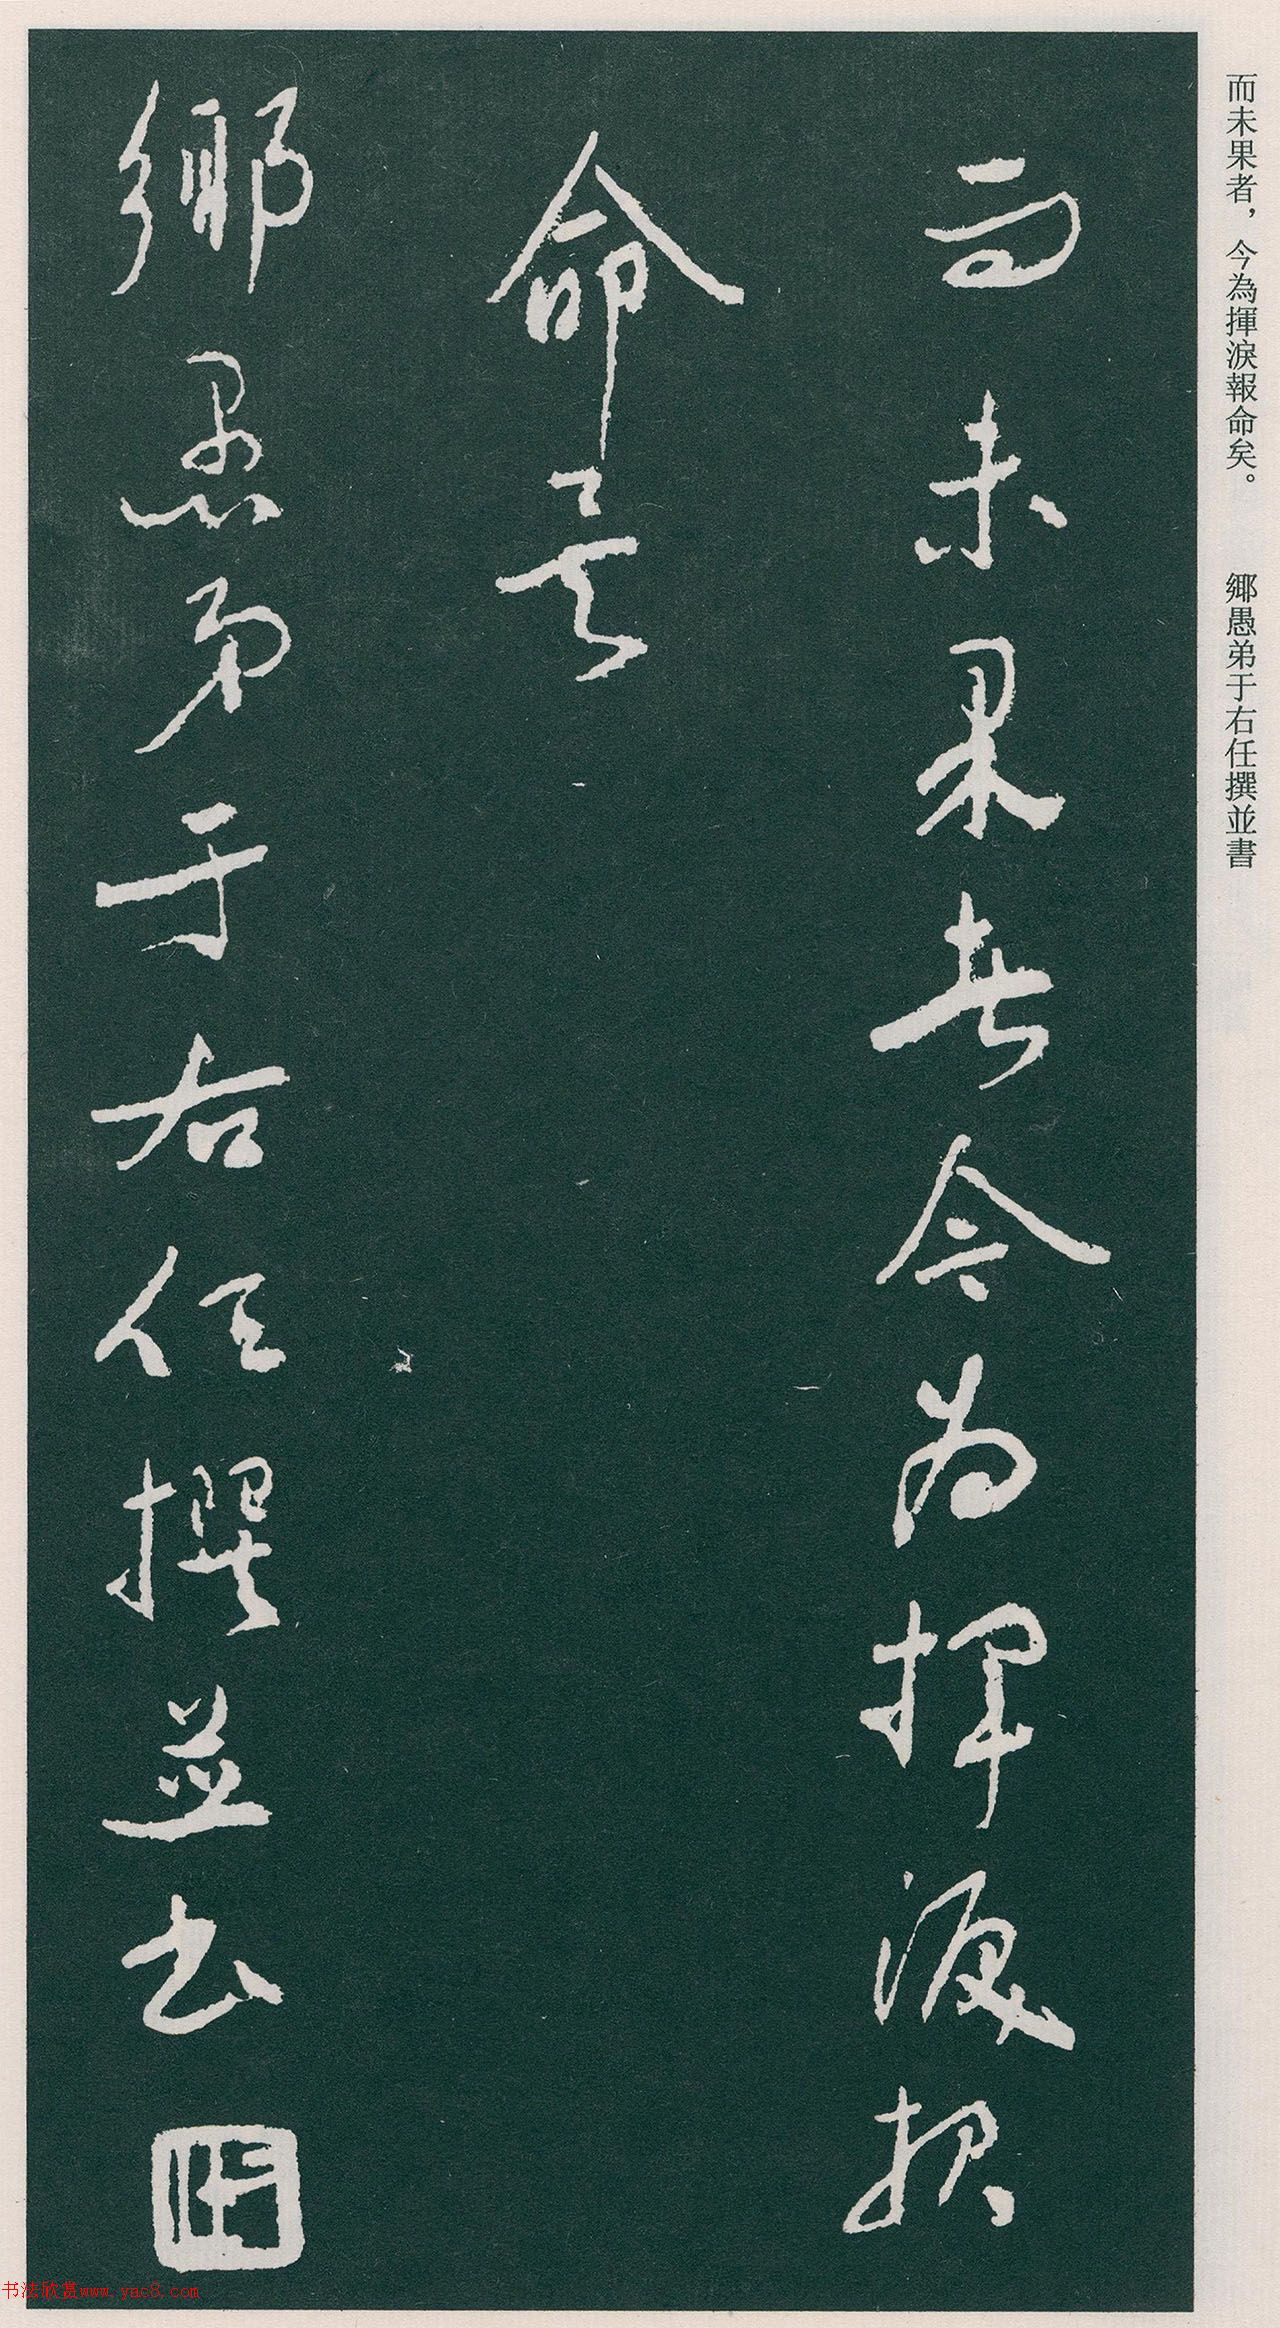 而未果者，今為揮淚報命矣。　鄉愚弟于右任撰並書
而未果者今为揮淚报
命矣
鄉愚弟于右任撰並书
书法欣赏www.yac8.com